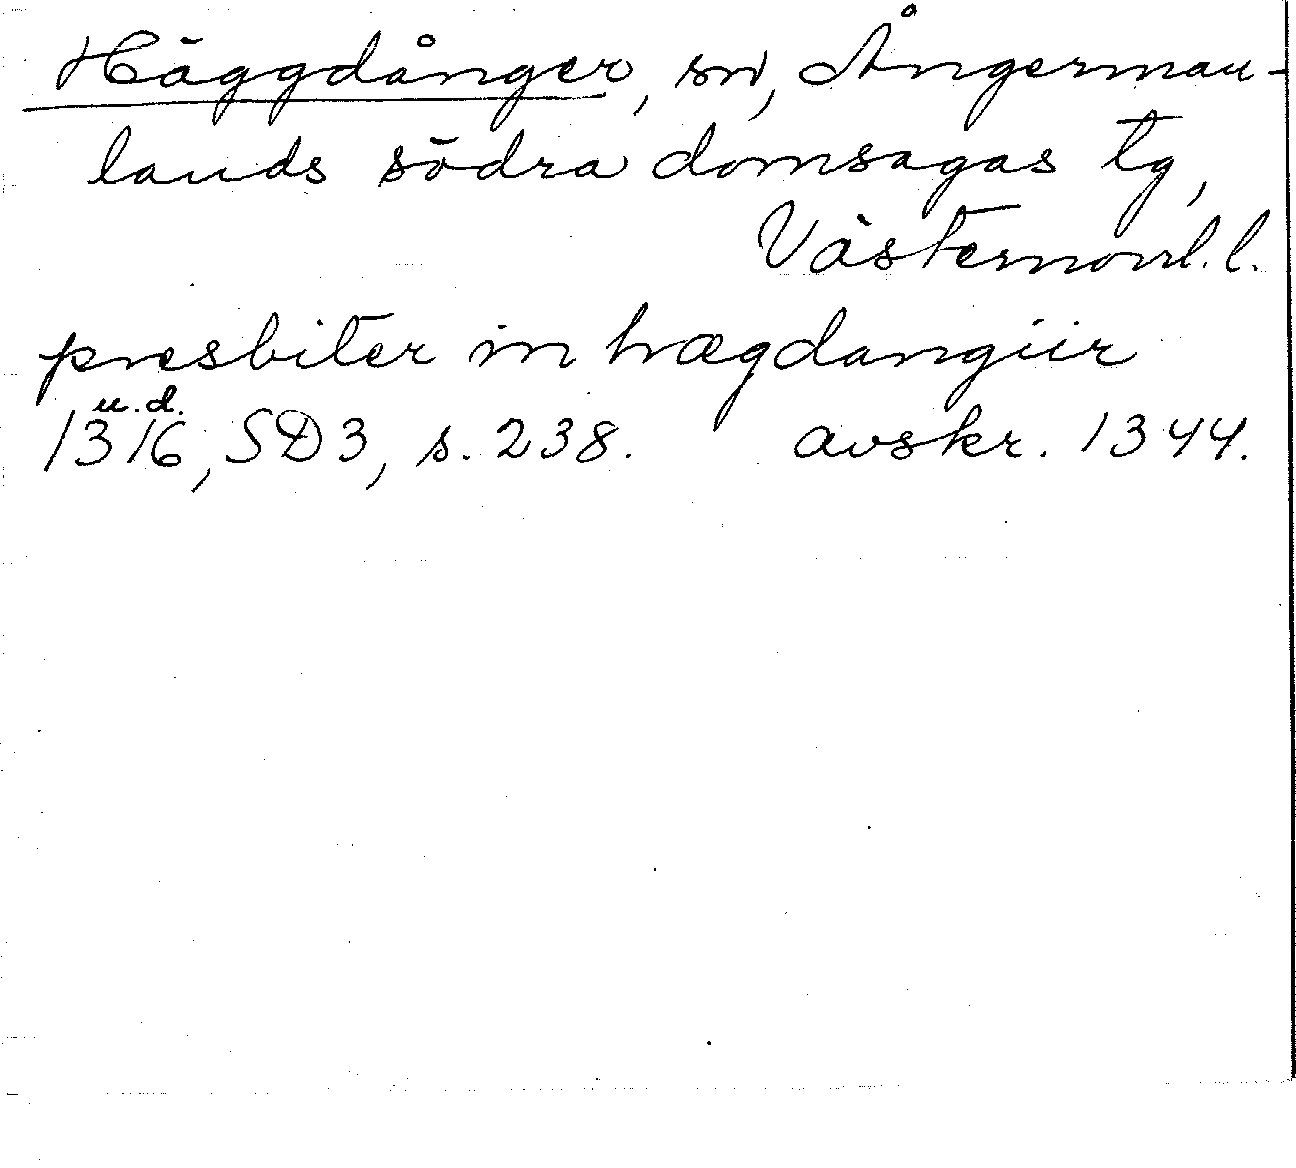 Häggdånger, sn, Ångerman-
lands södra domsagas tg,
Västernorrl. l.
presbiter in hægdangiir
u.d.
1316, SD3, s. 238. avskr. 1344.